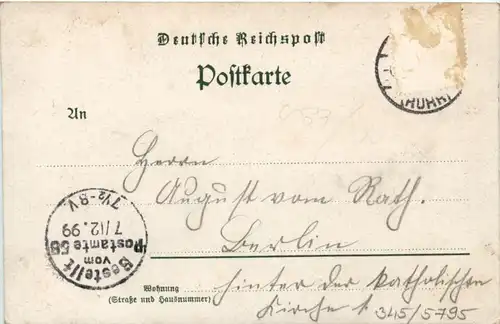 Deutsche Reichspost
Postkarte
(RUHR)
An
Herrn
August vom Rath.
Berlin
Bestellt
vom
Postamte 56
7/12. 99
7½-8V
Wohnung
(Straße und Hausnummer)
hinter der katholischen
Kirche 1
345/5795